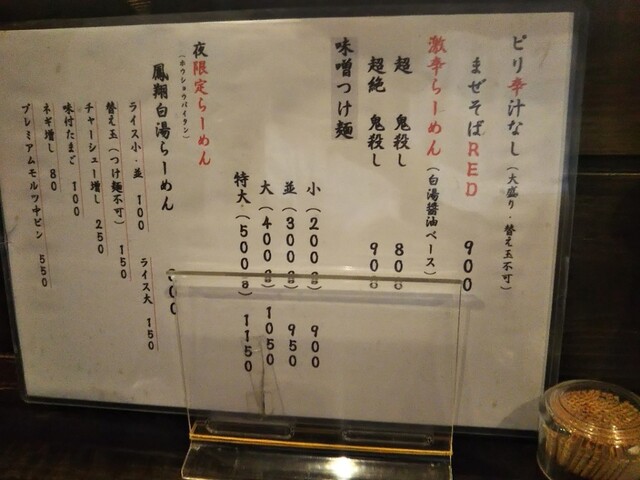 ピリ辛汁なし(大盛り・替え玉不可)
まぜそばRED 900
激辛らーめん(白湯醤油ベース)
超 鬼殺し 800
超絶 鬼殺し 900
味噌つけ麺
小(200g) 900
並(300g) 950
大(400g) 1050
特大(500g) 1150
夜限定らーめん
(ホウショウパイタン)
鳳翔白湯らーめん 00
ライス小・並 100 ライス大 150
替え玉(つけ麺不可) 150
チャーシュー増し 250
味付たまご 100
ネギ増し 80
プレミアムモルツ中ビン 550